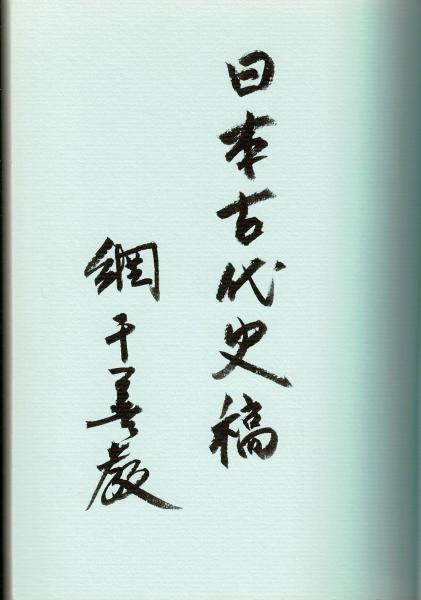 日本古代史稿
網干善教